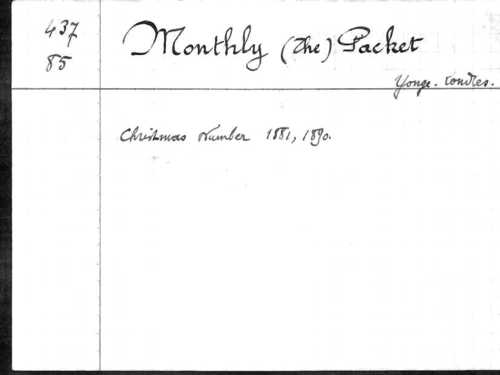 437
85
Monthly (The) Packet
Yonge. Londres.
Christmas Number 1881, 1890.